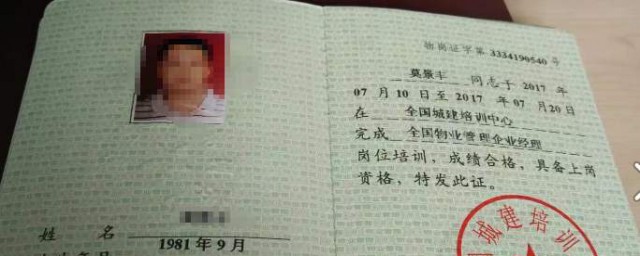 物岗证字第 3334190540 号
莫景丰 同志于 2017 年
07 月 10 日至 2017 年 07 月 20 日
在 全国城建培训中心
完成 全国物业管理企业经理
岗位培训，成绩合格，具备上岗
资格，特发此证。
姓 名
1981 年 9 月
城建培训